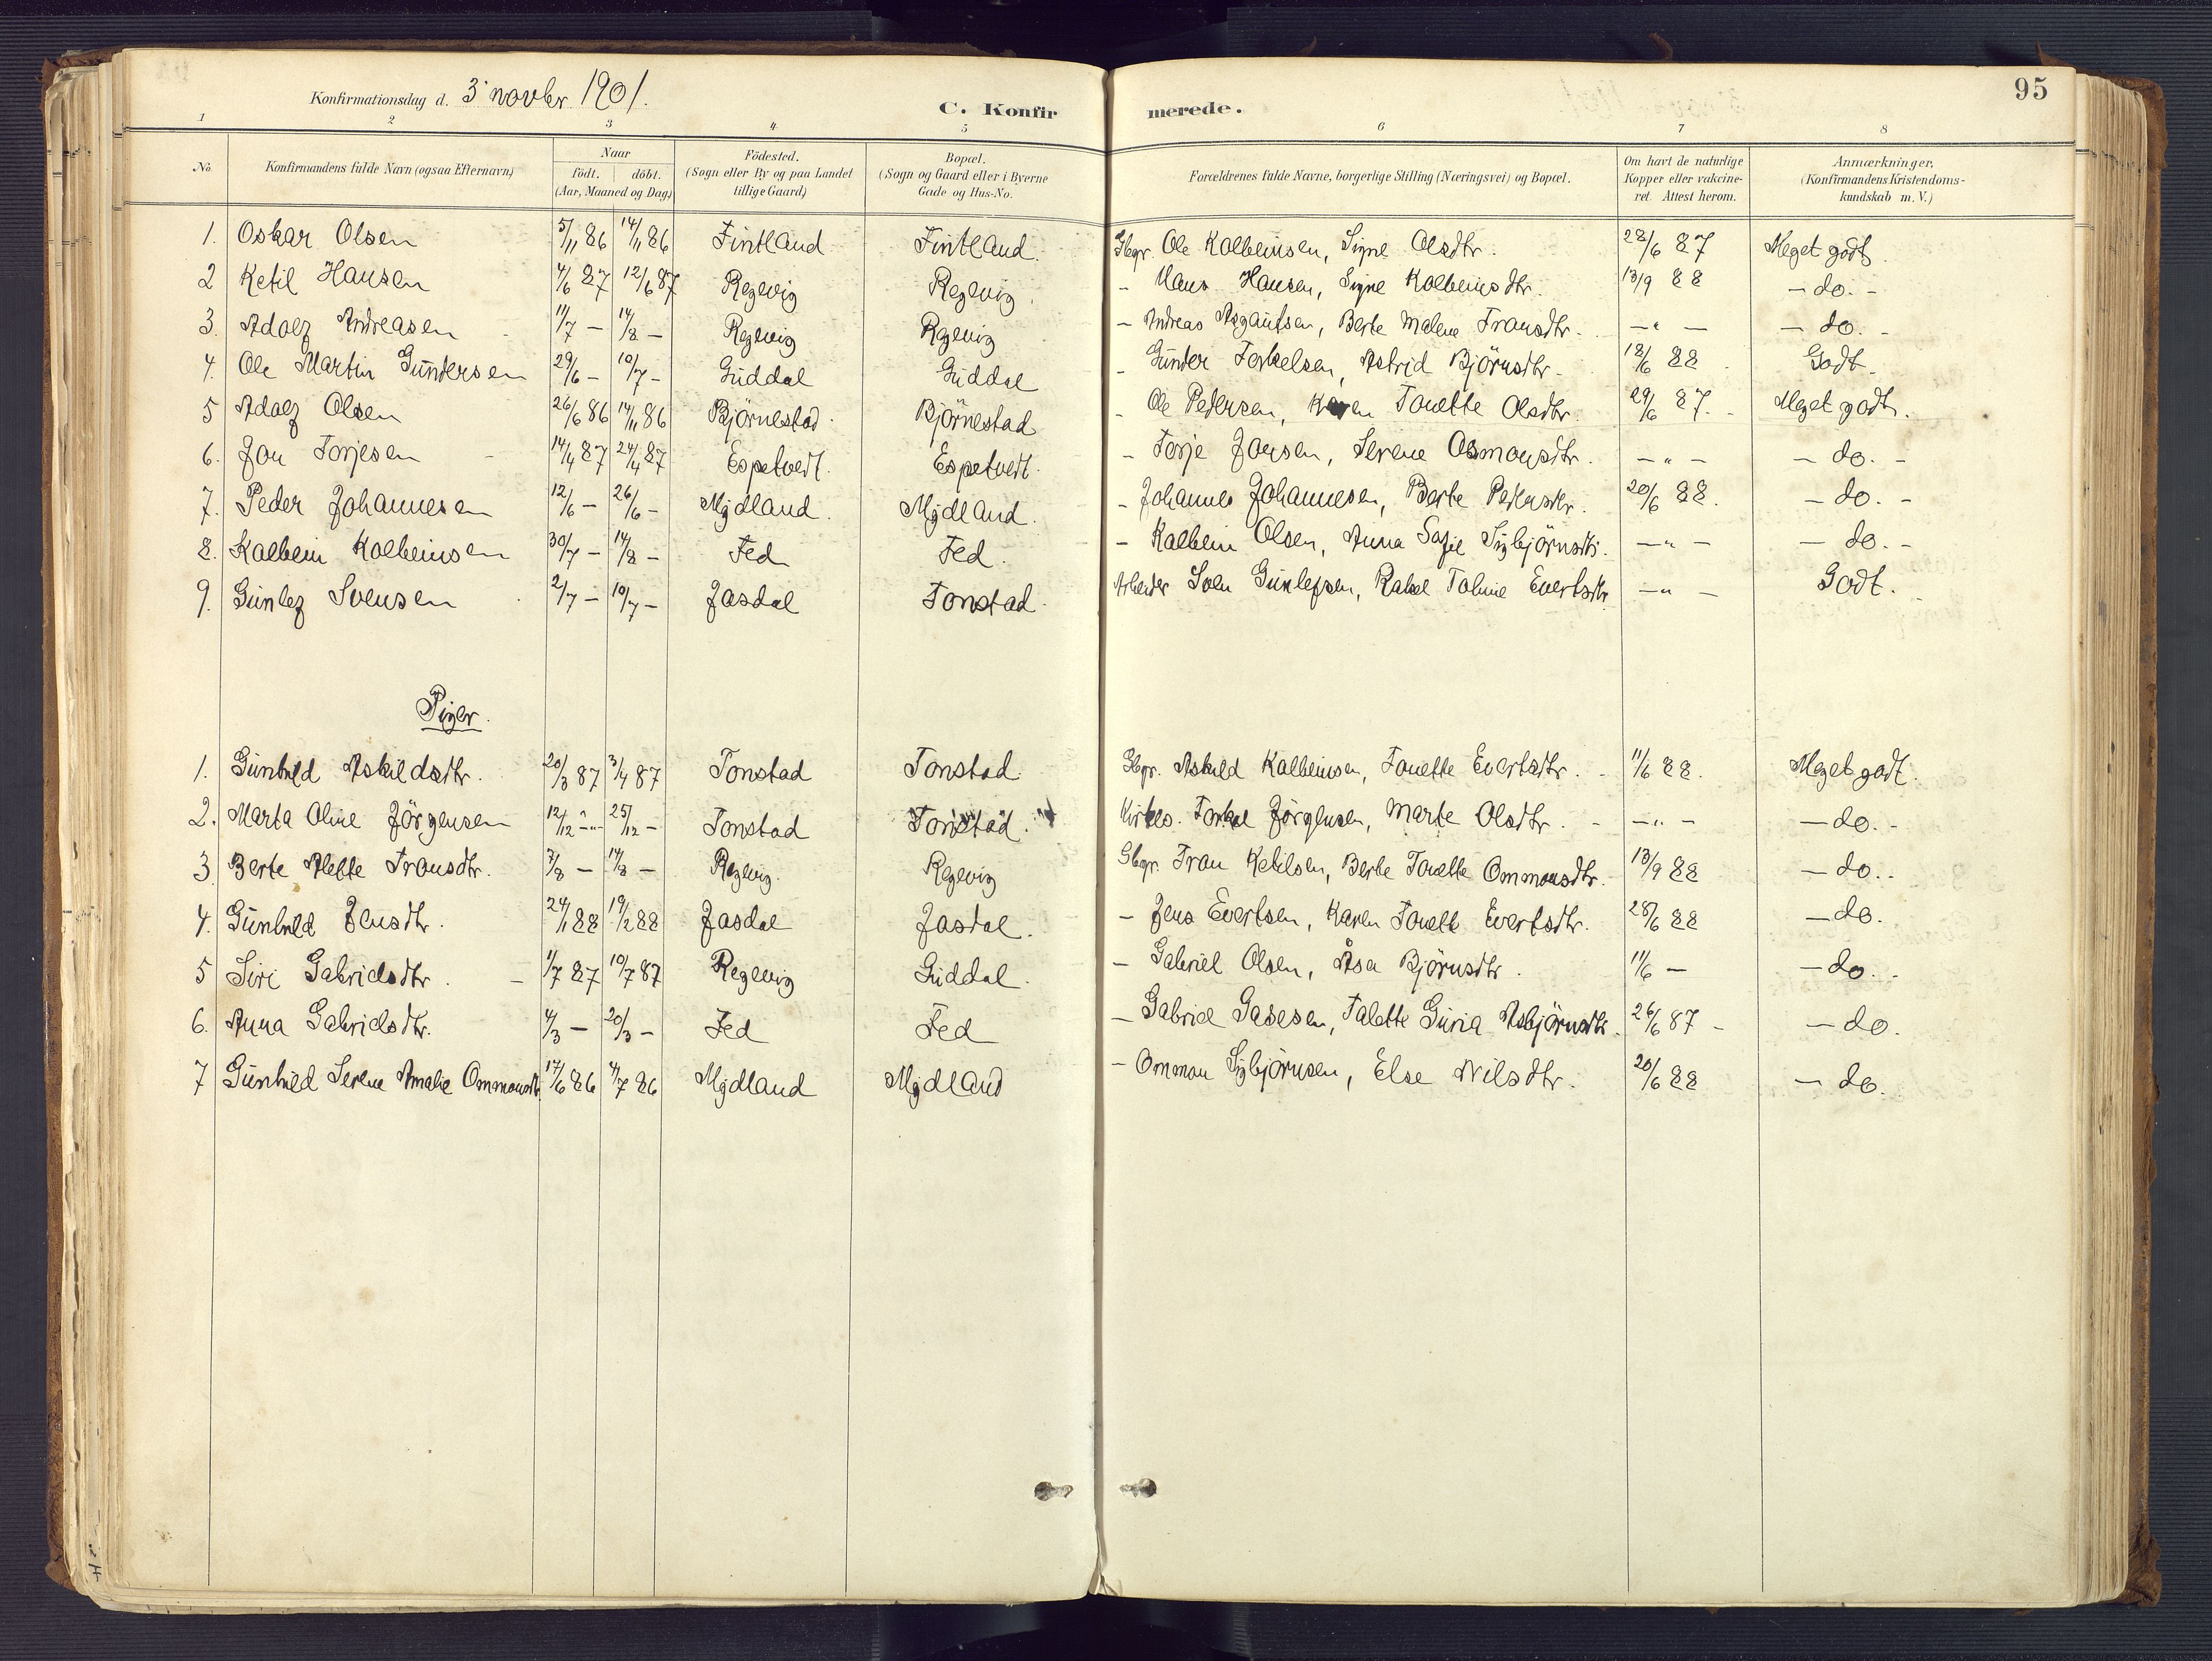 95
Konfirmationsdag d. 3 novbr. 1901.
C. Konfirmerede.
1 2 3 4 5 6 7 8
No. Konfirmandens fulde Navn (ogsaa Efternavn) Naar födt. döbt. (Aar, Maaned og Dag) Födested. (Sogn eller By og paa Landet tillige Gaard) Bopæl. (Sogn og Gaard eller i Byerne Gade og Hus-No. Forældrenes fulde Navne, borgerlige Stilling (Næringsvei) og Bopæl. Om havt de naturlige Kopper eller vakcineret. Attest herom. Anmærkninger, (Konfirmandens Kristendomskundskab m. V.)
1. Oskar Olsen 5/11 86 14/11 86 Fintland Fintland. Gbgr. Ole Kalbeinsen, Signe Olsdtr. 28/6 87 Meget godt.
2 Ketil Hansen 4/6 87 12/6 87 Regevig Regevig. - Hans Hansen, Signe Kolbeinsdtr. 13/9 88 - do. -
3. Adolf Andreasen 11/7 - 14/8 - Regevig Regevig - Andreas Asgautsen, Berte Malene Fransdtr. - " - - do. -
4. Ole Martin Gundersen 29/6 - 10/7 - Guddal Guddal - Gunder Torkelsen, Astrid Björnsdtr. 18/6 88 Godt.
5 Adolf Olsen 26/6 86 14/11 86 Björnestad. Björnestad - Ole Pedersen, Karen Tonette Olsdtr. 29/6 87. - Meget godt.
6. Jon Torjesen 14/4 87 24/4 87 Espetvedt. Espetvedt. - Torje Jonsen, Serene Osmonsdtr. - " - - do. -
7. Peder Johannesen 12/6 - 26/6 - Mydland. Mydland. - Johannes Johannesen, Berte Pedersdtr. 20/6 88. - do. -
8. Kalbein Kalbeinsen 30/7 - 14/8 - Fed Fed. - Kalbein Olsen, Anna Sofie Sigbjörnsdtr. - " - - do. -
9. Gunlef Svensen 2/7 - 10/7 - Josdal Tonstad. Arbeider Sven Gunlefsen, Rakel Tomine Evertsdtr. - " - Godt.
Piger.
1. Gunhild Askildsdtr. 20/3 87 3/4 87 Tonstad Tonstad. Gbgr. Askild Kalbeinsen, Tonette Evertsdtr. - 11/6 88. Meget godt.
2. Marta Oline Jörgensen 12/12 - " - 25/12 - Tonstad Tonstad. Kirkes. Torkel Jörgensen, Marte Olsdtr. - - " - - do. -
3. Berte Alette Fransdtr. 3/8 - 14/8 - Regevig. Regevig Gbgr. Fran Ketilsen, Berte Tonette Ommonsdtr. 13/9 88 - do. -
4. Gunhild Jensdtr. 24/1 88 19/2 88 Josdal Josdal. - Jens Evertsen, Karen Tonette Evertsdtr. 28/6 88 - do.
5 Siri Gabrielsdtr. - 1/7 87 10/7 87 Regevig Guddal. - Gabriel Olsen, Åsa Björnsdtr. 11/6 - - do. -
6. Anna Gabrielsdtr. 4/3 - 20/3 - Fed Fed - Gabriel Gabesen, Talette Guria Asbjörnsdtr. 26/6 87 - - do.
7 Gunhild Serene Amalie Ommonsdtr. 17/6 86 4/7 86 Mydland Mydland - Ommon Sigbjörnsen, Else Nilsdtr. 20/6 88 - do.